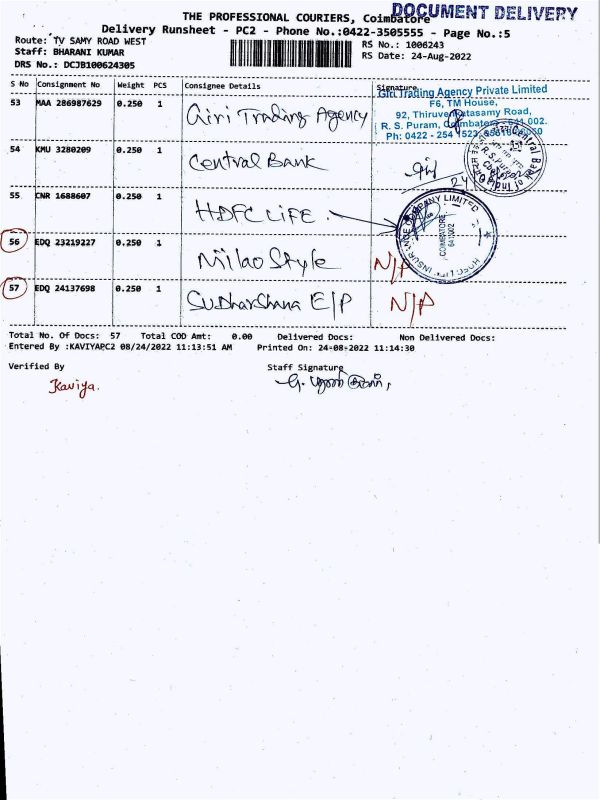 THE PROFESSIONAL COURIERS, Coimbatore
DOCUMENT DELIVERY
Delivery Runsheet - PC2 - Phone No.:0422-3505555 - Page No.:5
Route: TV SAMY ROAD WEST
RS No.: 1006243
Staff: BHARANI KUMAR
RS Date: 24-Aug-2022
DRS No.: DCJB100624305
S No Consignment No Weight PCS Consignee Details Signature
53 MAA 286987629 0.250 1 Giri Trading Agency
Giri Trading Agency Private Limited
F6, TM House,
92, Thiruvenkatasamy Road,
R. S. Puram, Coimbatore - 641 002.
Ph: 0422 - 254 1523
54 KMU 3280209 0.250 1 Central Bank
Central Bank of India
R.S. Puram
24
55 CNR 1688607 0.250 1 HDFC LIFE.
HDFC LIFE INSURANCE COMPANY LIMITED
COIMBATORE
641002
56 EDQ 23219227 0.250 1 Milao Style N/P
57 EDQ 24137698 0.250 1 Sudharshana E/P N/P
Total No. Of Docs: 57 Total COD Amt: 0.00 Delivered Docs: Non Delivered Docs:
Entered By :KAVIYAPC2 08/24/2022 11:13:51 AM Printed On: 24-08-2022 11:14:30
Verified By Staff Signature
Kaviya.